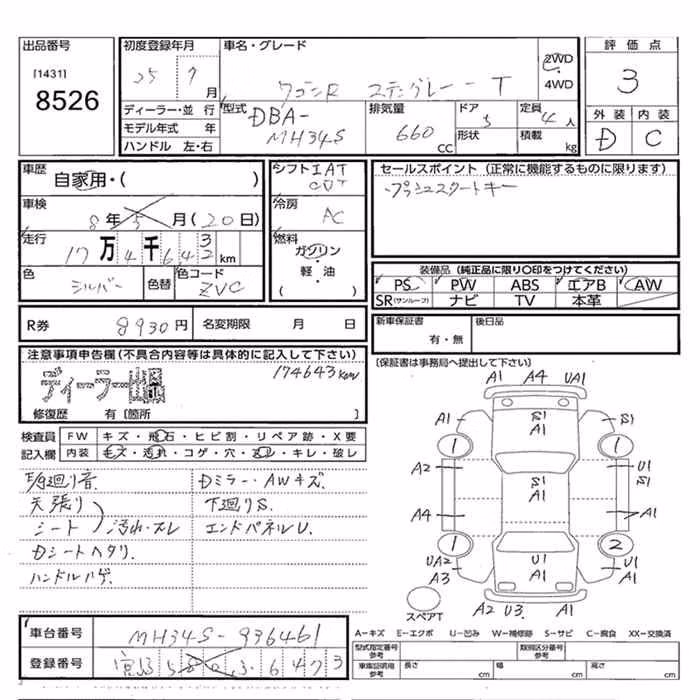 出品番号
[1431]
8526
初度登録年月
25 7月
ディーラー・並行
モデル年式 年
ハンドル 左・右
車名・グレード
ワゴンR スティングレー T
2WD
4WD
型式
DBA-
MH34S
排気量
660
CC
ドア
5
形状
定員
4人
積載
kg
評価点
3
外装 内装
D C
車歴
自家用・( )
車検
8年5月(20日)
走行
17万4千643
2 km
色
シルバー
色替
色コード
ZVC
シフト IAT
CVT
冷房
AC
燃料
ガソリン
・
軽・油
( )
セールスポイント (正常に機能するものに限ります)
プッシュスタートキー
装備品 (純正品に限り○印をつけてください)
PS PW ABS エアB AW
SR(サンルーフ) ナビ TV 本革
R券 8930円 名変期限 月 日
新車保証書
有・無
後日品
[保証書は事務局へ提出して下さい]
注意事項申告欄(不具合内容等は具体的に記入して下さい)
174643km
ディーラー出品
修復歴 有[箇所 ]
検査員
記入欄
FW キズ・飛石・ヒビ割・リペア跡・X要
内装 キズ・汚れ・コゲ・穴・スレ・キレ・破レ
F/9廻り音
天張り
シート 汚れ・スレ
Dシートヘタリ.
ハンドルハゲ.
Dミラー・AWキズ.
下廻りS.
エンドパネルU.
A1 A4 UA1
S1
A1
A1 S1
A1
1 1
A2 U1
S1
S1
A1
A4 A1
1 2
UA2 U1 U1
A3 A1 A1
スペアT A2 U3. A1
車台番号 MH34S-936461
登録番号
A-キズ E-エクボ U-凹み W-補修跡 S-サビ C-腐食 XX-交換済
型式指定番号
参考
類別区分番号
参考
車庫証明用
参考
長さ cm 幅 cm 高さ cm